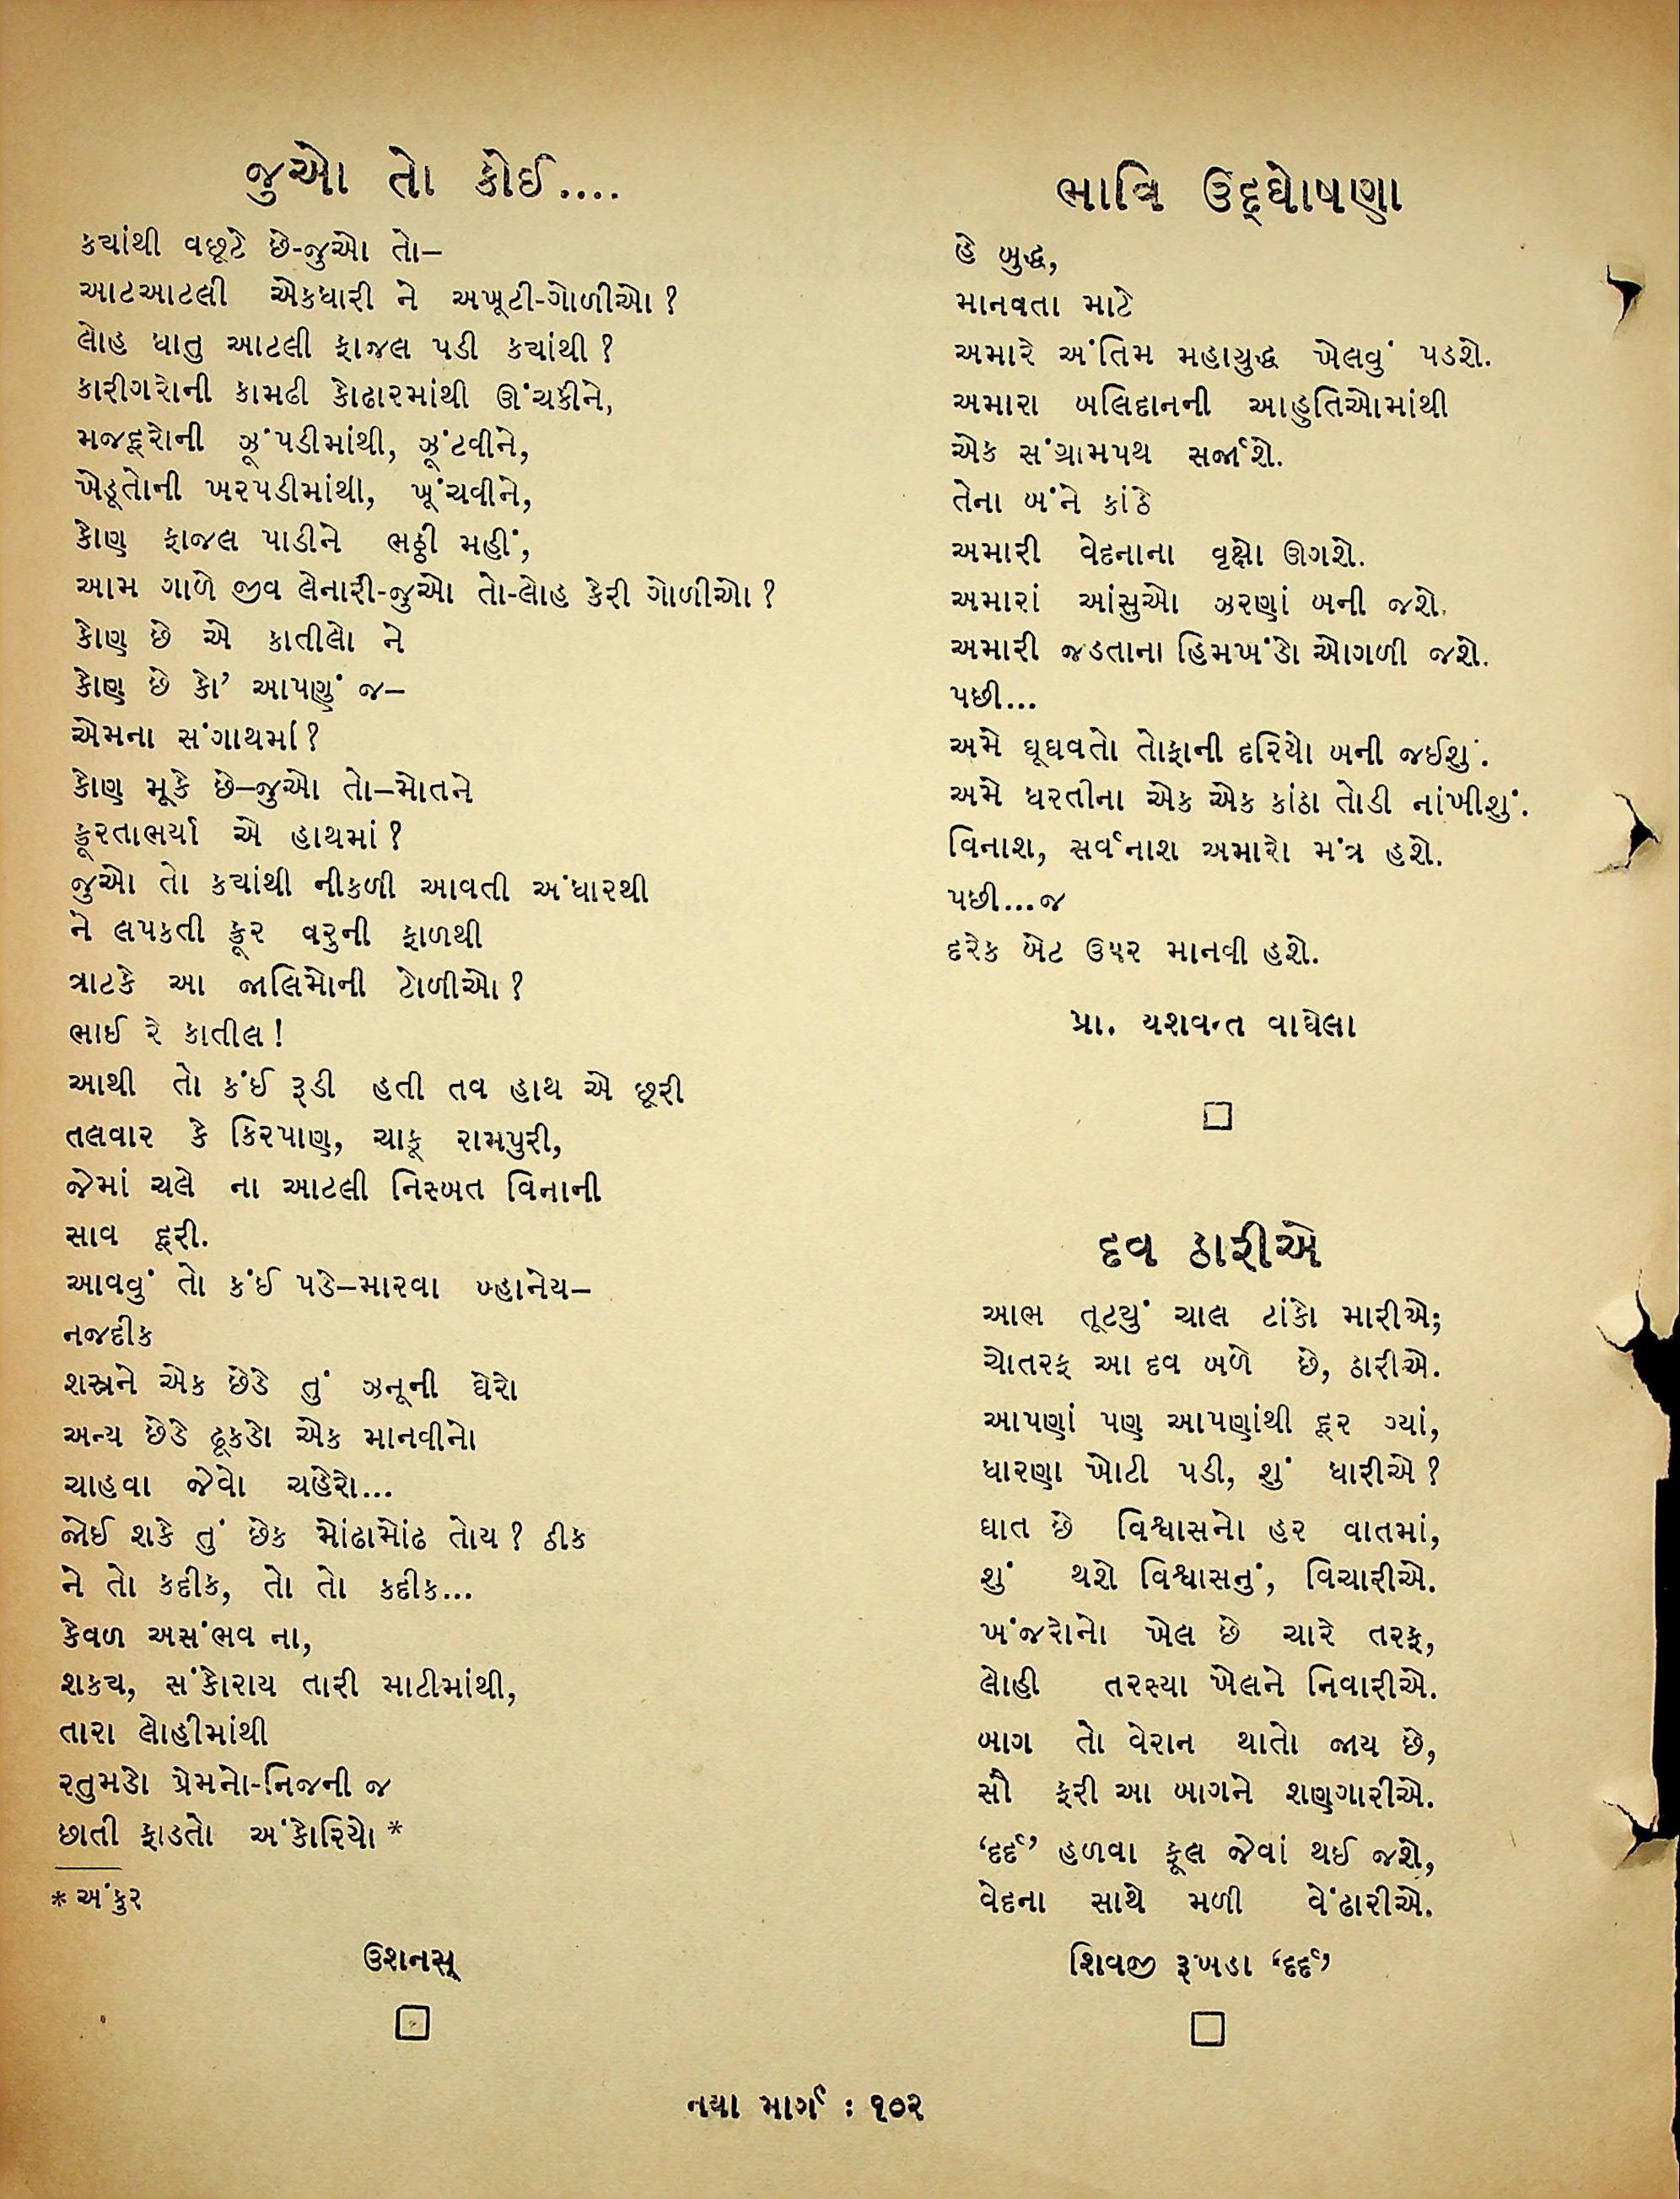 જુઓ તો કોઈ....
ક્યાંથી વછૂટે છે-જુઓ તો–
આટઆટલી એકધારી ને અખૂટી-ગોળીઓ ?
લોહ ધાતુ આટલી ફાજલ પડી ક્યાંથી ?
કારીગરોની કામઢી કોઢારમાંથી ઊંચકીને,
મજદૂરોની ઝૂંપડીમાંથી, ઝૂંટવીને,
ખેડૂતોની ખરપડીમાંથી, ખૂંચવીને,
કોણ ફાજલ પાડીને ભઠ્ઠી મહીં,
આમ ગાળે જીવ લેનારી-જુઓ તો-લોહ કેરી ગોળીઓ ?
કોણ છે એ કાતીલો ને
કોણ છે કો' આપણું જ–
એમના સંગાથમાં ?
કોણ મૂકે છે–જુઓ તો–મોતને
ક્રૂરતાભર્યા એ હાથમાં ?
જુઓ તો ક્યાંથી નીકળી આવતી અંધારથી
ને લપકતી ક્રૂર વરુની ફાળથી
ત્રાટકે આ જાલિમોની ટોળીઓ ?
ભાઈ રે કાતીલ !
આથી તો કંઈ રૂડી હતી તવ હાથ એ છૂરી
તલવાર કે કિરપાણ, ચાકૂ રામપુરી,
જેમાં ચલે ના આટલી નિસ્બત વિનાની
સાવ દૂરી.
આવવું તો કંઈ પડે–મારવા બ્હાનેય–
નજદીક
શસ્ત્રને એક છેડે તું ઝનૂની ઘેરો
અન્ય છેડે ઢૂકડો એક માનવીનો
ચાહવા જેવો ચહેરો...
જોઈ શકે તું છેક મોંઢામોંઢ તોય ? ઠીક
ને તો કદીક, તો તો કદીક...
કેવળ અસંભવ ના,
શક્ય, સંકોરાય તારી માટીમાંથી,
તારા લોહીમાંથી
રતુમડો પ્રેમનો-નિજની જ
છાતી ફાડતો અંકોરિયો *
* અંકુર
ઉશનસ્
ભાવિ ઉદ્ઘોષણા
હે બુદ્ધ,
માનવતા માટે
અમારે અંતિમ મહાયુદ્ધ ખેલવું પડશે.
અમારા બલિદાનની આહુતિઓમાંથી
એક સંગ્રામપથ સર્જાશે.
તેના બંને કાંઠે
અમારી વેદનાના વૃક્ષો ઊગશે.
અમારાં આંસુઓ ઝરણાં બની જશે.
અમારી જડતાના હિમખંડો ઓગળી જશે.
પછી...
અમે ઘૂઘવતો તોફાની દરિયો બની જઈશું.
અમે ધરતીના એક એક કાંઠા તોડી નાંખીશું.
વિનાશ, સર્વનાશ અમારો મંત્ર હશે.
પછી...જ
દરેક બેટ ઉપર માનવી હશે.
પ્રા. યશવન્ત વાઘેલા
દવ ઠારીએ
આભ તૂટ્યું ચાલ ટાંકો મારીએ;
ચોતરફ આ દવ બળે છે, ઠારીએ.
આપણાં પણ આપણાંથી દૂર ગ્યાં,
ધારણા ખોટી પડી, શું ધારીએ ?
ઘાત છે વિશ્વાસનો હર વાતમાં,
શું થશે વિશ્વાસનું, વિચારીએ.
ખંજરોનો ખેલ છે ચારે તરફ,
લોહી તરસ્યા ખેલને નિવારીએ.
બાગ તો વેરાન થાતો જાય છે,
સૌ ફરી આ બાગને શણગારીએ.
‘દર્દ’ હળવા ફૂલ જેવાં થઈ જશે,
વેદના સાથે મળી વેંઢારીએ.
શિવજી રૂખડા ‘દર્દ’
નયા માર્ગ : ૧૦૨